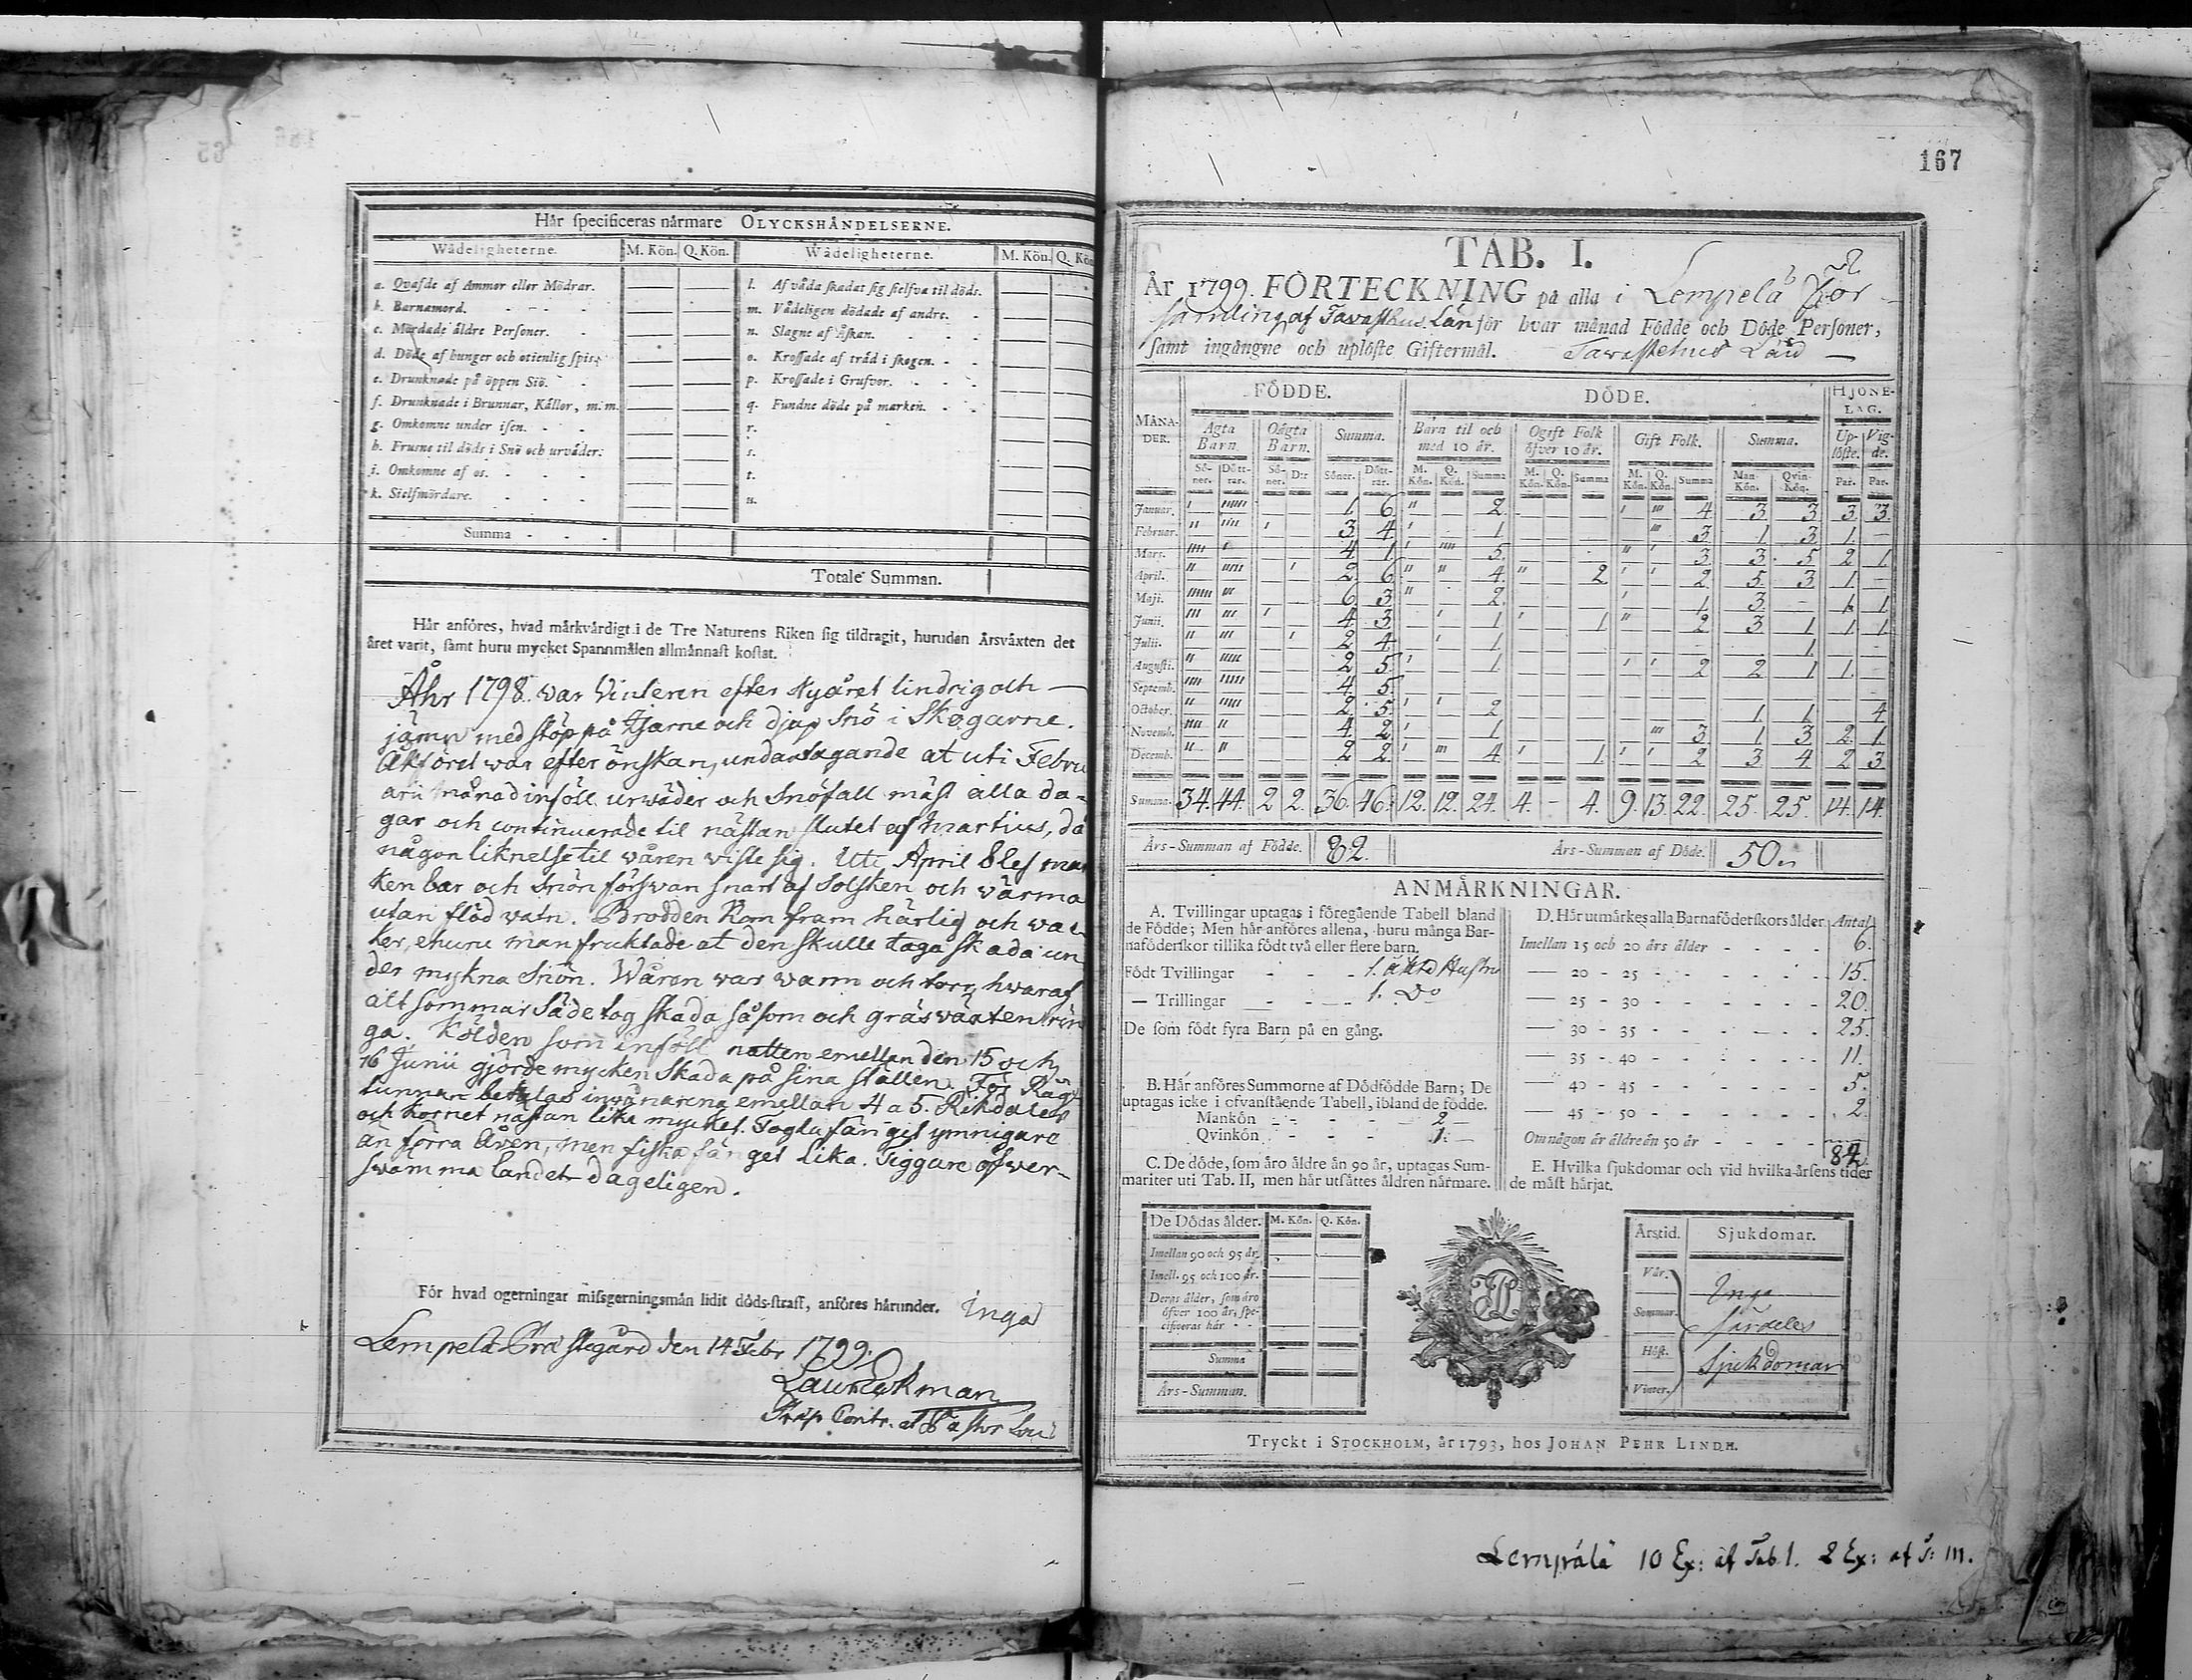 Hår ſpecificeras nårmare OLYCKSHÅNDELSERNE.
Wådeligheterne. M. Kön. Q. Kön. Wådeligheterne. M. Kön. Q. Kön
a. Qvafde af Ammor eller Mödrar. l. Af våda ſkadat ſig ſielfva til döds.
b. Barnamord. m. Vådeligen dödade af andre.
c. Mördade åldre Perſoner. n. Slagne af Åſkan.
d. Döde af hunger och otienlig ſpis. o. Kroſſade af tråd i ſkogen.
e. Drunknade på öppen Siö. p. Kroſſade i Grufvor.
f. Drunknade i Brunnar, Kållor, m. m. q. Fundne döde på marken.
g. Omkomne under iſen. r.
h. Fruſne til döds i Snö och urvåder. s.
i. Omkomne af os. t.
k. Sielfmördare. u.
Summa
Totale Summan.
Hår anföres, hvad mårkvårdigt i de Tre Naturens Riken ſig tildragit, hurudan Årsvåxten det
året varit, ſamt huru mycket Spannmålen allmånnaſt koſtat.
Åhr 1798. war Vinteren efter Nyåret lindrig och
jämn med stöp på Kjärne och djup Snö i Skogarne.
Åkföret war efter önskan, undantagande at uti Febru
arii månad inföll urwäder och Snöfall mäst alla da-
gar och continuerade til nästan slutet af Martius, då
någon liknelse til våren viste sig. Uti April blef mar
ken bar och Snön förswan snart af Solsken och värma
utan flöd vatn. Brodden kom fram härlig och wac
ker, ehuru man fruktade at den skulle taga skada un
der mykna Snön. Wåren war warm och torr, hvaraf
alt sommar Säde tog skada såsom och gräsväxten rin
ga. Kölden som inföll natten emellan den 15 och
16 Junii gjorde mycken Skada på sina ställen. För Råg
tunnan betalas invånarena emellan 4 a 5. Rikdaler
och kornet nästan lika mycket. Fogla fänget ymnigare
än förra Åren, men fiska fänget lika. Tiggare öfwer-
swamma landet dageligen.
För hvad ogerningar miſsgerningsmån lidit döds-ſtraff, anföres hårunder. inga
Lempelä Prästegård den 14 Febr 1799.
Laur Ekman
Präp Contr. at Pastor Loci
167
TAB. I.
År 1799. FÖRTECKNING på alla i Lempelä För
samling af Tavasthus Län för hvar månad Födde och Döde Perſoner,
ſamt ingångne och uplöſte Giftermål. Tavastehus Län
MÅNA-DER. FÖDDE. DÖDE. HJONE-LAG.
Ägta Barn. Oägta Barn. Summa. Barn til och med 10 år. Ogift Folk öfver 10 år. Gift Folk. Summa. Up-löſte. Vig-de.
Sö-ner. Dött-rar. Sö-ner. D:r Söner. Dött-rar. M. Kön. Q. Kön. Summa M. Kön. Q. Kön. Summa M. Kön. Q. Kön. Summa Man-Kön. Qvin-Kön. Par. Par.
Januar. 1 6 2 4 3 3 3 3
Februar. 3 4 1 3 1 3 1
Mars. 4 1 5 3 3 5 2 1
April. 2 6 4 2 2 5 3 1
Maji. 6 3 2 1 3 1 1
Junii. 4 3 1 1 2 3 1 1 1
Julii. 2 4 1 1
Auguſti. 2 5 1 2 2 1 1
Septemb. 4 5
October. 2 5 2 1 1 4
Novemb. 4 2 1 3 1 3 2 1
Decemb. 2 2 4 1 2 3 4 2 3
Summa. 34. 44. 2 2. 36. 46. 12. 12. 24. 4. - 4. 9. 13. 22. 25. 25. 14. 14.
Års-Summan af Födde. 82. Års-Summan af Döde. 50
ANMÅRKNINGAR.
A. Tvillingar uptagas i föregående Tabell bland
de Födde; Men hår anföres allena, huru många Bar-
naföderſkor tillika födt två eller flere barn.
Födt Tvillingar 1. äkta Hustru
— Trillingar 1. Do
De ſom födt fyra Barn på en gång.
B. Hår anföres Summorne af Dödfödde Barn; De
uptagas icke i ofvanſtående Tabell, ibland de födde.
Mankön 2
Qvinkön 1
C. De döde, ſom åro åldre ån 90 år, uptagas Sum-
mariter uti Tab. II, men hår utſåttes åldren nårmare.
D. Hår utmårkes alla Barnaföderſkors ålder. Antal
Imellan 15 och 20 års ålder 6.
— 20 - 25 15.
— 25 - 30 20.
— 30 - 35 25.
— 35 - 40 11.
— 40 - 45 5.
— 45 - 50 2.
Om någon år åldre ån 50 år
84
E. Hvilka ſjukdomar och vid hvilka årſens tider
de måſt hårjat.
De Dödas ålder. M. Kön. Q. Kön.
Imellan 90 och 95 år.
Imell. 95 och 100 år.
Deras ålder, ſom åro
öfver 100 år, ſpe-
cificeras hår
Summa
Års-Summan.
Årstid. Sjukdomar.
Vår. Inga
Sommar. särdeles
Höſt. Sjukdomar
Vinter.
Tryckt i STOCKHOLM, år 1793, hos JOHAN PEHR LINDH.
Lempälä 10 Ex: af Tab. I. 2 Ex: af T: III.